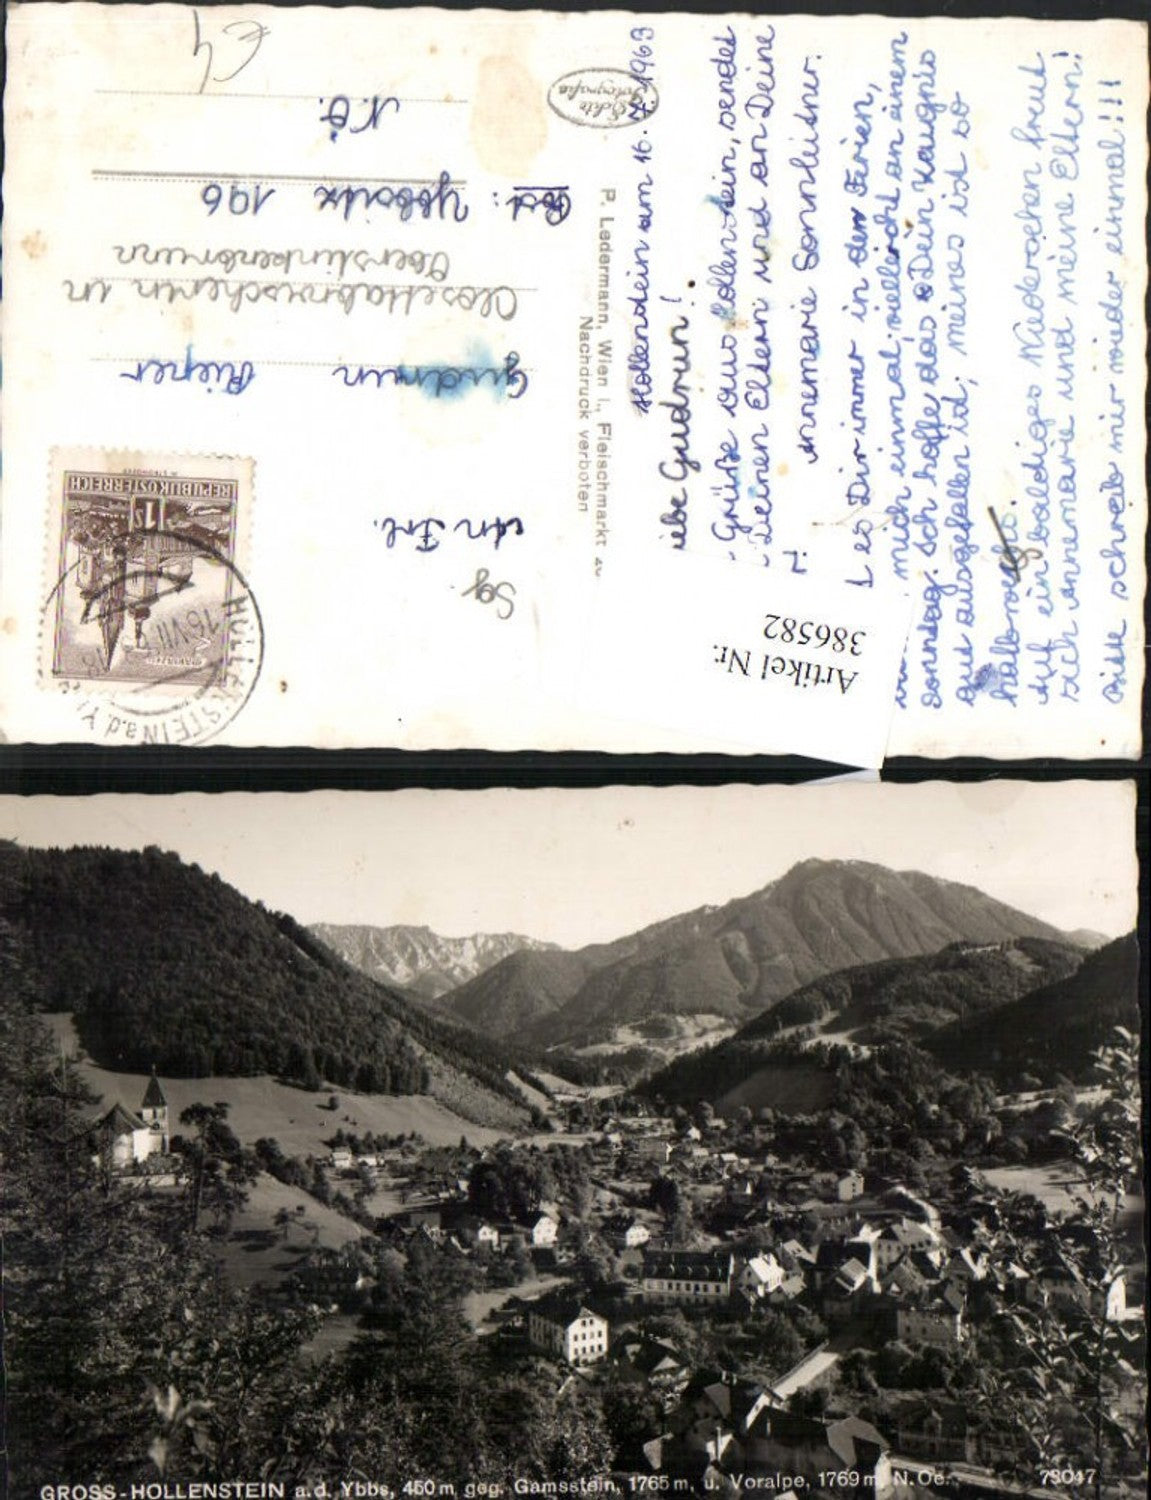 €4
Echte
Fotografie
Hollenstein am 16. 7. 1963
iebe Gudrun!
Grüße aus Hollenstein, sendet
Deinen Eltern und an Deine
Annemarie Sonnleitner.
es Dir immer in den Ferien,
mich einmal, vielleicht an einem
Sonntag. Ich hoffe das Dein Zeugnis
gut ausgefallen ist, meines ist so
halb
Auf ein baldiges Wiedersehen freut
sich Annemarie und meine Eltern!
Bitte schreib mir wieder einmal!!!
P. Ledermann, Wien I., Fleischmarkt 20
Nachdruck verboten
Sg.
An Frl.
Gudrun Rieper
in
Post: Ybbsitz 196
N.Ö.
REPUBLIK ÖSTERREICH
1 S
HOLLENSTEIN a.d. Y
16.VII
Artikel Nr.
386582
GROSS-HOLLENSTEIN a.d. Ybbs, 450 m geg. Gamsstein, 1765 m, u. Voralpe, 1769 m, N.Oe. 73047